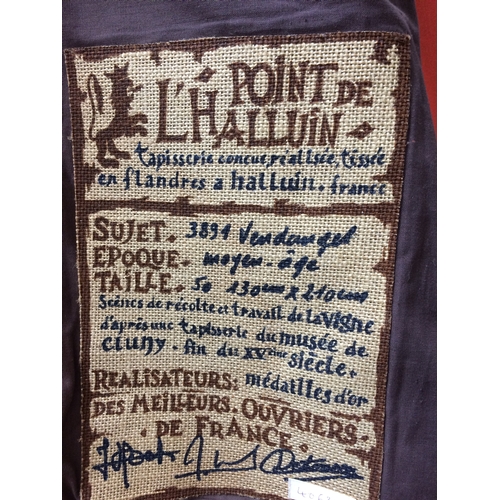 POINT DE
L'HALLUIN
tapisserie concue, réalisée, tissée
en flandres a halluin. france
SUJET. 3891 Vendanges
EPOQUE. moyen-âge
TAILLE. 50 130cm x 210cm
Scènes de récolte et travail de la vigne
d'après une tapisserie du musée de
cluny. fin du XVème siècle.
REALISATEURS: médailles d'or
DES MEILLEURS. OUVRIERS.
• DE FRANCE •